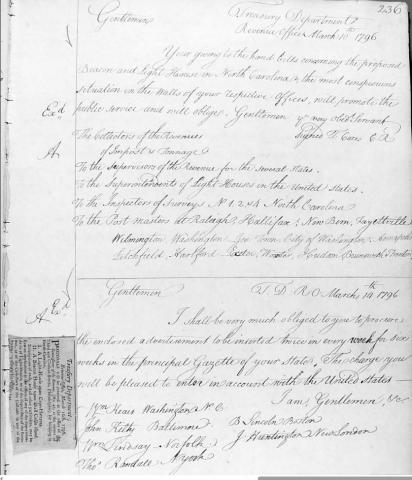 236
Gentlemen
Treasury Department
Revenue Office March 10th 1796
Your giving to the hand bills concerning the proposed
Beacon and Light House in North Carolina, the most conspicuous
situation in the Walls of your respective Offices, will promote the
public service and will oblige, Gentlemen yr very obedt Servant
Signed T. Coxe C.R.
Exd
A
The Collectors of the Revenues
of Impost & Tonnage
To the Supervisors of the Revenue for the several States.
To the Superintendents of Light Houses in the United States.
To the Inspectors of Surveys No 1, 2, & 4 North Carolina
To the Post masters at Raleigh, Hallifax, New Bern, Fayetteville
Wilmington, Washington, Geo Town, City of Washington
Litchfield, Hartford, Hudson Brunswick Trenton
Exd
A
Gentlemen
T.D.R.O March 14th 1796
I shall be very much obliged to you to procure
the enclosed advertisement to be inserted twice in every week for six
weeks in the principal Gazette of your State. The charge you
will be pleased to enter in account with the United States—
I am, Gentlemen, &c
Wm Keais Washington N C
John Kilty Baltimore
B Lincoln Boston
Wm Lindsay Norfolk
J Huntington New London
Thos Randall N York
Treasury Department